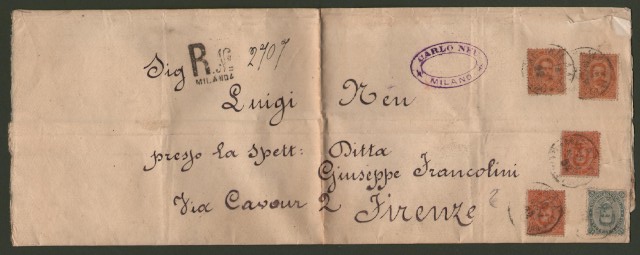 R. No 2707
MILANO
CARLO NEU
MILANO
Sig
Luigi Neu
presso la Spett: Ditta
Giuseppe Francolini
Via Cavour 2 Firenze